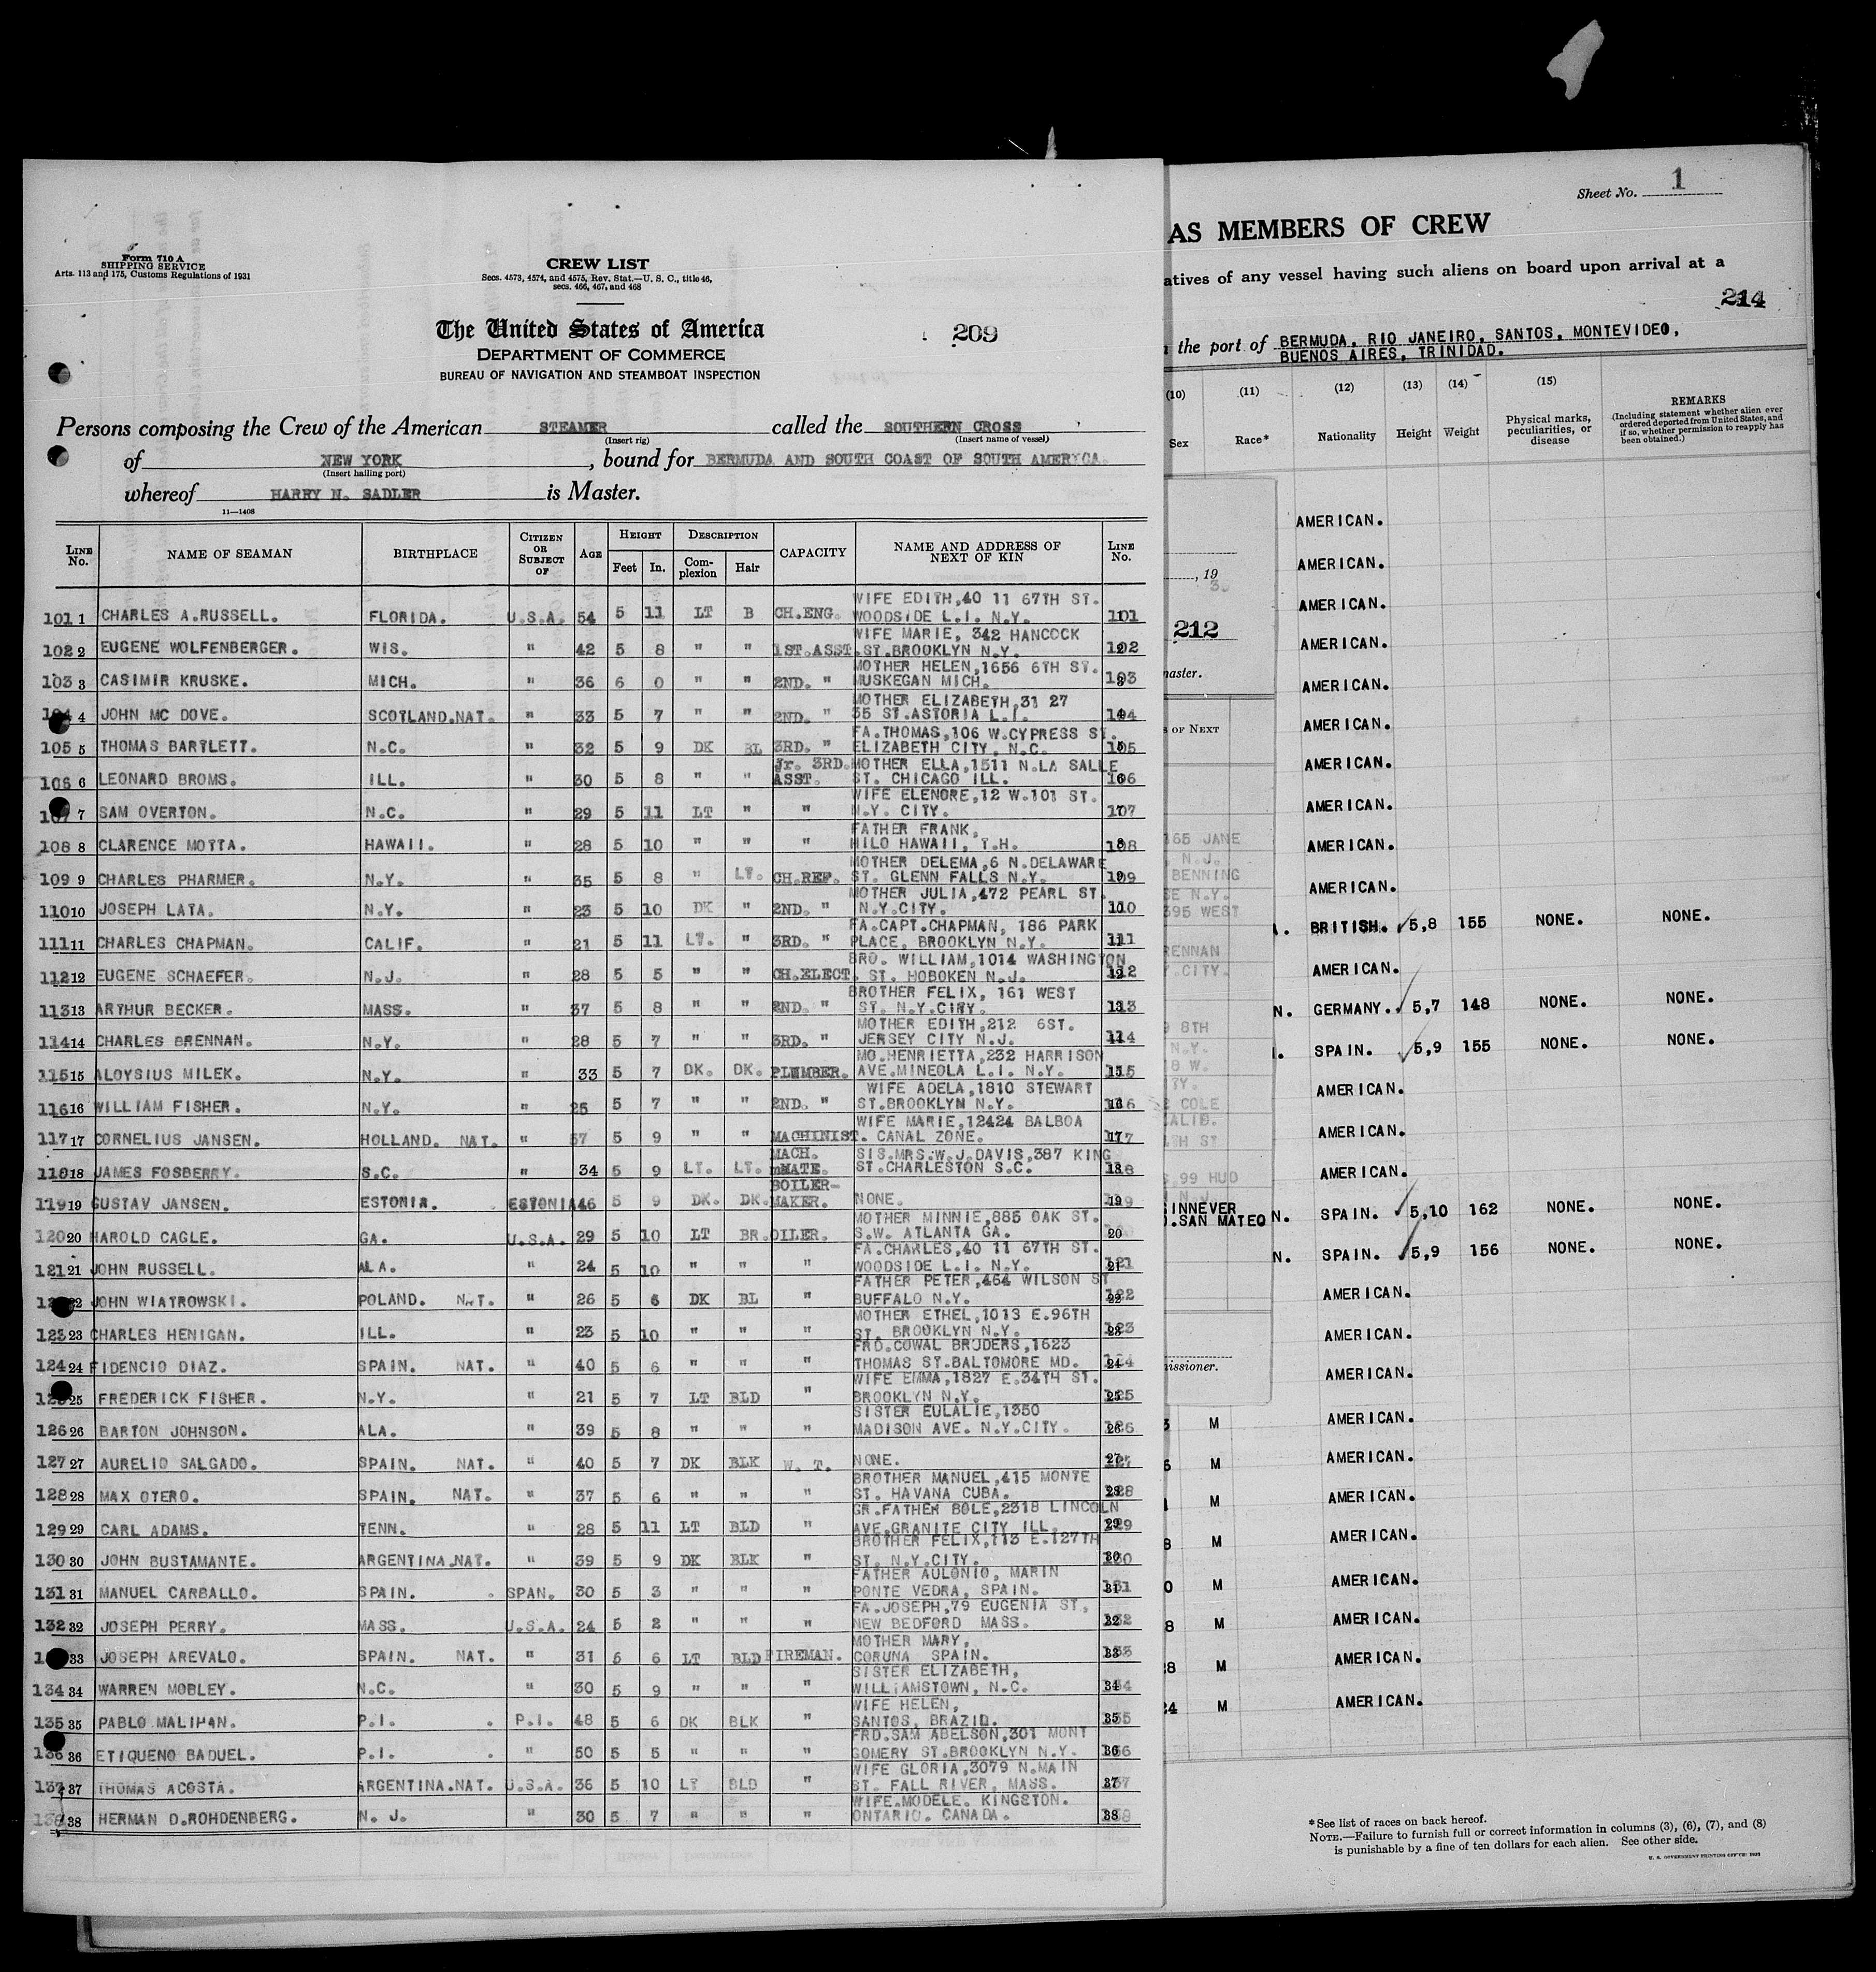 Form 710 A
SHIPPING SERVICE
Arts. 113 and 175, Customs Regulations of 1931
CREW LIST
Secs. 4573, 4574, and 4575, Rev. Stat.—U. S. C., title 46,
secs. 466, 467, and 468
The United States of America
209
DEPARTMENT OF COMMERCE
BUREAU OF NAVIGATION AND STEAMBOAT INSPECTION
Persons composing the Crew of the American STEAMER called the SOUTHERN CROSS
(Insert rig) (Insert name of vessel)
of NEW YORK, bound for BERMUDA AND SOUTH COAST OF SOUTH AMERICA.
(Insert hailing port)
whereof HARRY N. SADLER is Master.
11—1408
LINE No. NAME OF SEAMAN BIRTHPLACE CITIZEN OR SUBJECT OF AGE HEIGHT Feet In. DESCRIPTION Complexion Hair CAPACITY NAME AND ADDRESS OF NEXT OF KIN LINE No.
WIFE EDITH,40 11 67TH ST.
101 1 CHARLES A.RUSSELL. FLORIDA. U.S.A. 54 5 11 LT B CH.ENG. WOODSIDE L.I. N.Y. 101
WIFE MARIE, 342 HANCOCK
102 2 EUGENE WOLFENBERGER. WIS. " 42 5 8 " " 1ST.ASST. ST.BROOKLYN N.Y. 102
MOTHER HELEN,1656 6TH ST.
103 3 CASIMIR KRUSKE. MICH. " 36 6 0 " " 2ND. " MUSKEGAN MICH. 103
MOTHER ELIZABETH,31 27
4 JOHN MC DOVE. SCOTLAND.NAT. " 33 5 7 " " 2ND. " 35 ST.ASTORIA L.I. 104
FA.THOMAS,106 W.CYPRESS ST.
105 5 THOMAS BARTLETT. N.C. " 32 5 9 DK BL 3RD. " ELIZABETH CITY, N.C. 105
Jr. 3RD. MOTHER ELLA,1511 N.LA SALLE
106 6 LEONARD BROMS. ILL. " 30 5 8 " " ASST. ST. CHICAGO ILL. 106
WIFE ELENORE,12 W.101 ST.
7 SAM OVERTON. N.C. " 29 5 11 LT " " N.Y. CITY. 107
FATHER FRANK,
108 8 CLARENCE MOTTA. HAWAII. " 28 5 10 " " " HILO HAWAII, T.H. 108
MOTHER DELEMA,6 N.DELAWARE
109 9 CHARLES PHARMER. N.Y. " 35 5 8 " LT. CH.REF. ST. GLENN FALLS N.Y. 109
MOTHER JULIA,472 PEARL ST.
110 10 JOSEPH LATA. N.Y. " 23 5 10 DK " 2ND. " N.Y.CITY. 110
FA.CAPT.CHAPMAN, 186 PARK
111 11 CHARLES CHAPMAN. CALIF. " 21 5 11 LT. " 3RD. " PLACE, BROOKLYN N.Y. 111
BRO. WILLIAM,1014 WASHINGTON
112 12 EUGENE SCHAEFER. N.J. " 28 5 5 " " CH.ELECT. ST. HOBOKEN N.J. 112
BROTHER FELIX, 161 WEST
113 13 ARTHUR BECKER. MASS. " 37 5 8 " " 2ND. " ST. N.Y.CITY. 113
MOTHER EDITH,212 6ST.
114 14 CHARLES BRENNAN. N.Y. " 28 5 7 " " 3RD. " JERSEY CITY N.J. 114
MO.HENRIETTA,232 HARRISON
115 15 ALOYSIUS MILEK. N.Y. " 33 5 7 DK. DK. PLUMBER. AVE.MINEOLA L.I. N.Y. 115
WIFE ADELA,1810 STEWART
116 16 WILLIAM FISHER. N.Y. " 25 5 7 " " 2ND. " ST.BROOKLYN N.Y. 116
WIFE MARIE,12424 BALBOA
117 17 CORNELIUS JANSEN. HOLLAND. NAT. " 57 5 9 " " MACHINIST. CANAL ZONE. 117
MACH. SIS.MRS.W.J.DAVIS,387 KING
118 18 JAMES FOSBERRY. S.C. " 34 5 9 LT. LT. MATE. ST.CHARLESTON S.C. 118
BOILER-
119 19 GUSTAV JANSEN. ESTONIA. ESTONIA 46 5 9 DK. DK. MAKER. NONE. 119
MOTHER MINNIE,885 OAK ST.
120 20 HAROLD CAGLE. GA. U.S.A. 29 5 10 LT BR. OILER. S.W. ATLANTA GA. 20
FA.CHARLES,40 11 67TH ST.
121 21 JOHN RUSSELL. ALA. " 24 5 10 " " " WOODSIDE L.I. N.Y. 121
FATHER PETER,464 WILSON ST
22 JOHN WIATROWSKI. POLAND. NAT. " 26 5 6 DK BL " BUFFALO N.Y. 122
MOTHER ETHEL,1013 E.96TH
123 23 CHARLES HENIGAN. ILL. " 23 5 10 " " " ST. BROOKLYN N.Y. 123
FRD.COWAL BRUDERS,1623
124 24 FIDENCIO DIAZ. SPAIN. NAT. " 40 5 6 " " " THOMAS ST.BALTOMORE MD. 124
WIFE EMMA,1827 E.34TH ST.
25 FREDERICK FISHER. N.Y. " 21 5 7 LT BLD " BROOKLYN N.Y. 125
SISTER EULALIE,1350
126 26 BARTON JOHNSON. ALA. " 39 5 8 " " " MADISON AVE. N.Y.CITY. 126
127 27 AURELIO SALGADO. SPAIN. NAT. " 40 5 7 DK BLK W. T. NONE. 127
BROTHER MANUEL,415 MONTE
128 28 MAX OTERO. SPAIN. NAT. " 37 5 6 " " " ST. HAVANA CUBA. 128
GR.FATHER BOLE,2318 LINCOLN
129 29 CARL ADAMS. TENN. " 28 5 11 LT BLD " AVE.GRANITE CITY ILL. 129
BROTHER FELIX,113 E.127TH
130 30 JOHN BUSTAMANTE. ARGENTINA.NAT. " 39 5 9 DK BLK " ST. N.Y.CITY. 130
FATHER AULONIO, MARIN
131 31 MANUEL CARBALLO. SPAIN. SPAN. 30 5 3 " " " PONTE VEDRA, SPAIN. 131
FA.JOSEPH,79 EUGENIA ST,
132 32 JOSEPH PERRY. MASS. U.S.A. 24 5 2 " " " NEW BEDFORD MASS. 132
MOTHER MARY,
33 JOSEPH AREVALO. SPAIN. NAT. " 31 5 6 LT BLD FIREMAN. CORUNA SPAIN. 133
SISTER ELIZABETH,
134 34 WARREN MOBLEY. N.C. " 30 5 9 " " " WILLIAMSTOWN, N.C. 134
WIFE HELEN,
135 35 PABLO MALIHAN. P.I. P.I. 48 5 6 DK BLK " SANTOS, BRAZIL. 135
FRD.SAM ABELSON,301 MONT
136 36 ETIQUENO BADUEL. P.I. " 50 5 5 " " " GOMERY ST.BROOKLYN N.Y. 136
WIFE GLORIA,3079 N.MAIN
137 37 THOMAS ACOSTA. ARGENTINA.NAT. U.S.A. 36 5 10 LT BLD " ST. FALL RIVER, MASS. 137
WIFE.MODELE. KINGSTON.
138 38 HERMAN D.ROHDENBERG. N. J. " 30 5 7 " " " ONTARIO. CANADA. 138
Sheet No. 1
AS MEMBERS OF CREW
atives of any vessel having such aliens on board upon arrival at a
214
the port of BERMUDA, RIO JANEIRO, SANTOS, MONTEVIDEO,
BUENOS AIRES, TRINIDAD.
(10) (11) (12) (13) (14) (15)
Sex Race* Nationality Height Weight Physical marks, peculiarities, or disease REMARKS
(Including statement whether alien ever ordered deported from United States, and if so, whether permission to reapply has been obtained.)
AMERICAN.
AMERICAN.
, 19
AMERICAN.
212 AMERICAN.
master.
AMERICAN.
AMERICAN.
OF NEXT
AMERICAN.
AMERICAN.
165 JANE AMERICAN.
N.J.
BENNING AMERICAN.
N.Y.
595 WEST BRITISH. 5,8 155 NONE. NONE.
RENNAN
.CITY. AMERICAN.
N. GERMANY. 5,7 148 NONE. NONE.
8TH
N.Y. SPAIN. 5,9 155 NONE. NONE.
8 W.
AMERICAN.
COLE
CALIF.
TH ST AMERICAN.
99 HUD AMERICAN.
N.J.
INNEVER
.SAN MATEO N. SPAIN. 5,10 162 NONE. NONE.
N. SPAIN. 5,9 156 NONE. NONE.
AMERICAN.
AMERICAN.
missioner. AMERICAN.
M AMERICAN.
M AMERICAN.
M AMERICAN.
8 M AMERICAN.
0 M AMERICAN.
8 M AMERICAN.
28 M AMERICAN.
24 M AMERICAN.
*See list of races on back hereof.
NOTE.—Failure to furnish full or correct information in columns (3), (6), (7), and (8)
is punishable by a fine of ten dollars for each alien. See other side.
U. S. GOVERNMENT PRINTING OFFICE